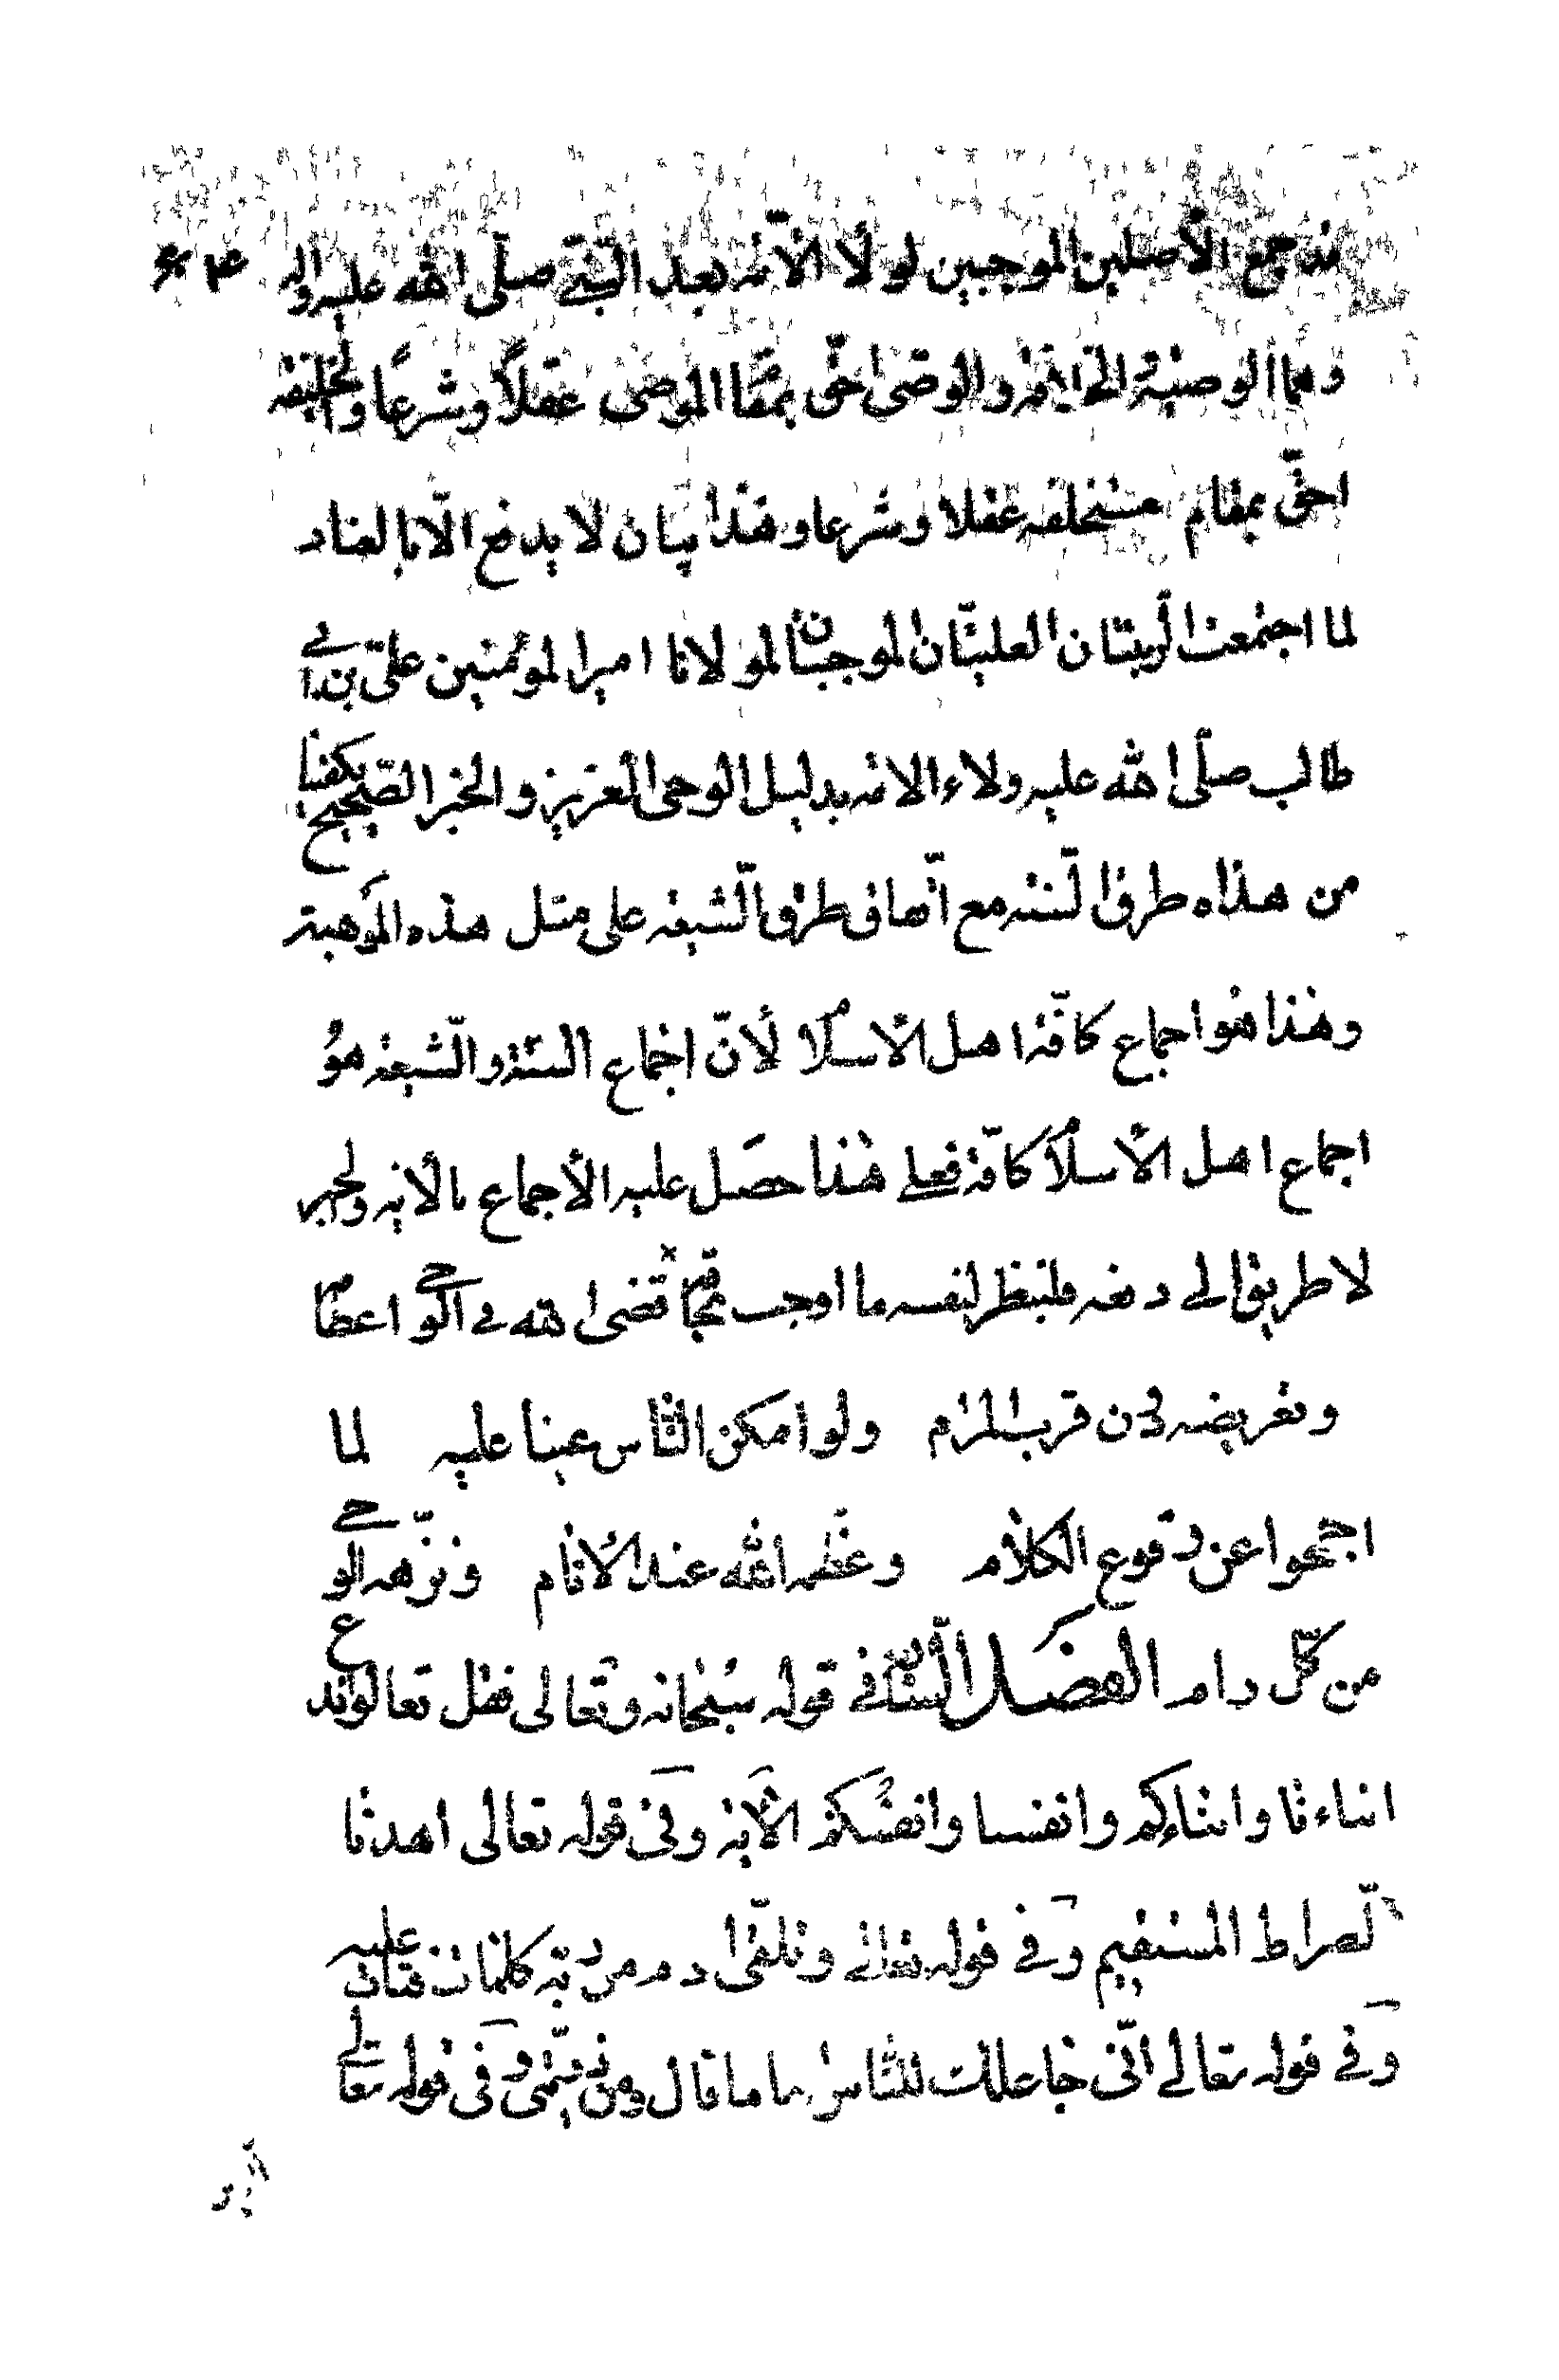 قد جمع الأصلين الموجبين لولاء الامّة بعد النبيّ صلّى الله عليه واله ۶۴
وهما الوصيّة والخلافة والوصىّ احقّ بمقام الموصى عقلاً وشرعاً والخليفة
احقّ بمقام مستخلفه عقلا وشرعا وهذا بيان لا يدفع الّا بالعناد
لما اجتمعت الرتبتان العليتان الموجبتان لمولانا امير المؤمنين على بن ابى
طالب صلّى الله عليه ولاء الامة بدليل الوحى العزيز والخبر الصّحيح يكفينا
من هذاه طرق السّنة مع اتّفاق طرق الشّيعة على مثل هذه الموهبة
وهذا هو اجماع كافّة اهل الاسلام لأنّ اجماع السنّة والشّيعة هو
اجماع اهل الأسلام كافّة فعلى هذا حصل عليه الأجماع بالأية والخبر
لا طريق الى دفعه فلينظر لنفسه ما اوجب قضى الله فى الوحى اعظام
وتعريضه فى ن قرب المرام ولو امكن النّاس عيبا عليه لما
اجحموا عن وقوع الكلام وعظّمه الله عند الأنام ونزّهه الوحى
من كلّ دام الفصل السّابع فى قوله سبحانه وتعالى فقل تعالوا ندع
ابناءنا وابناءكم وانفسنا وانفسكم الأية وفى قوله تعالى اهدنا
الصّراط المستقيم وفى قوله تعالى وتلقّى ادم من ربّه كلمات فتاب عليه
وفى قوله تعالى انّى جاعلك للنّاس اماما قال ومن ذريّتى وفى قوله تعالى